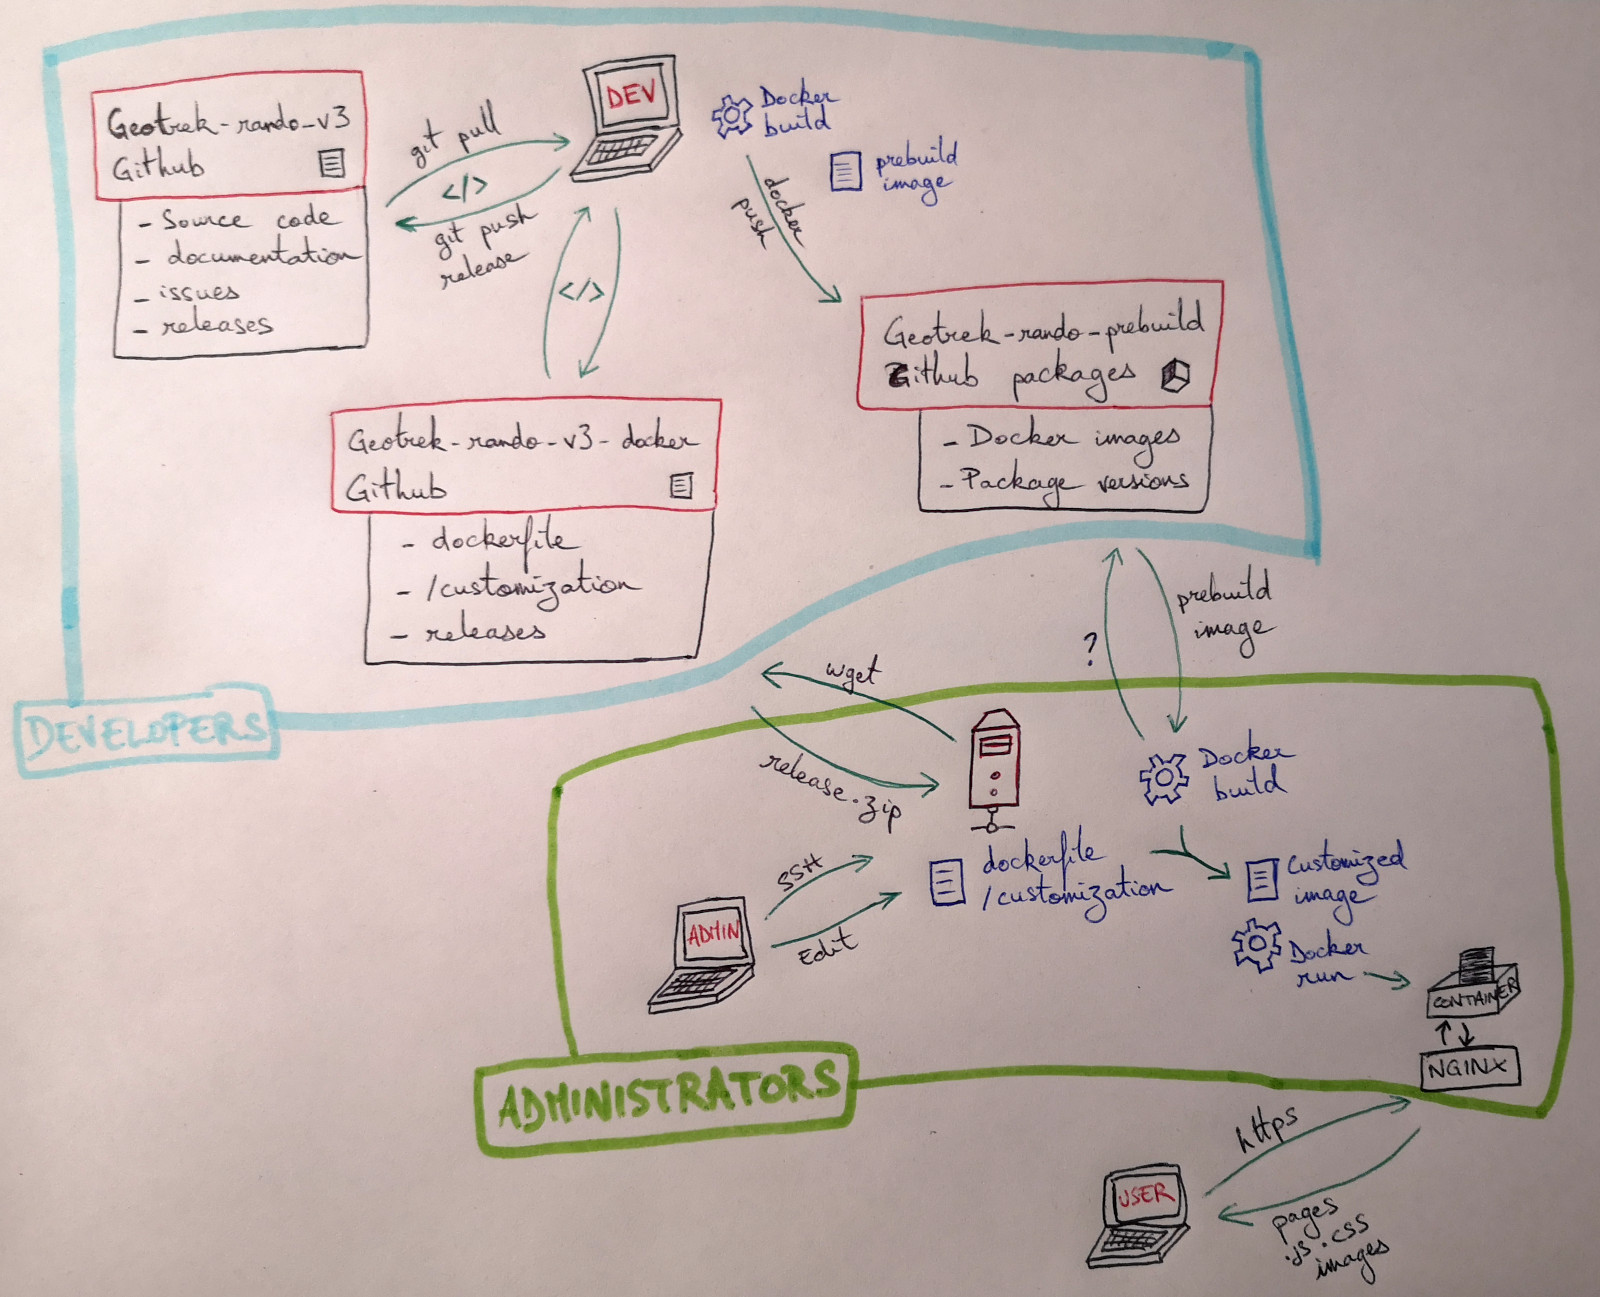 Geotrek-rando-v3
Github
- Source code
- documentation
- issues
- releases
git pull
</>
git push
release
DEV
Docker
build
prebuild
image
docker
push
</>
Geotrek-rando-prebuild
Github packages
- Docker images
- Package versions
Geotrek-rando-v3-docker
Github
- dockerfile
- /customization
- releases
DEVELOPERS
?
prebuild
image
wget
release.zip
Docker
build
SSH
Edit
ADMIN
dockerfile
/customization
Customized
image
Docker
run
CONTAINER
NGINX
ADMINISTRATORS
https
USER
pages
.js .css
images